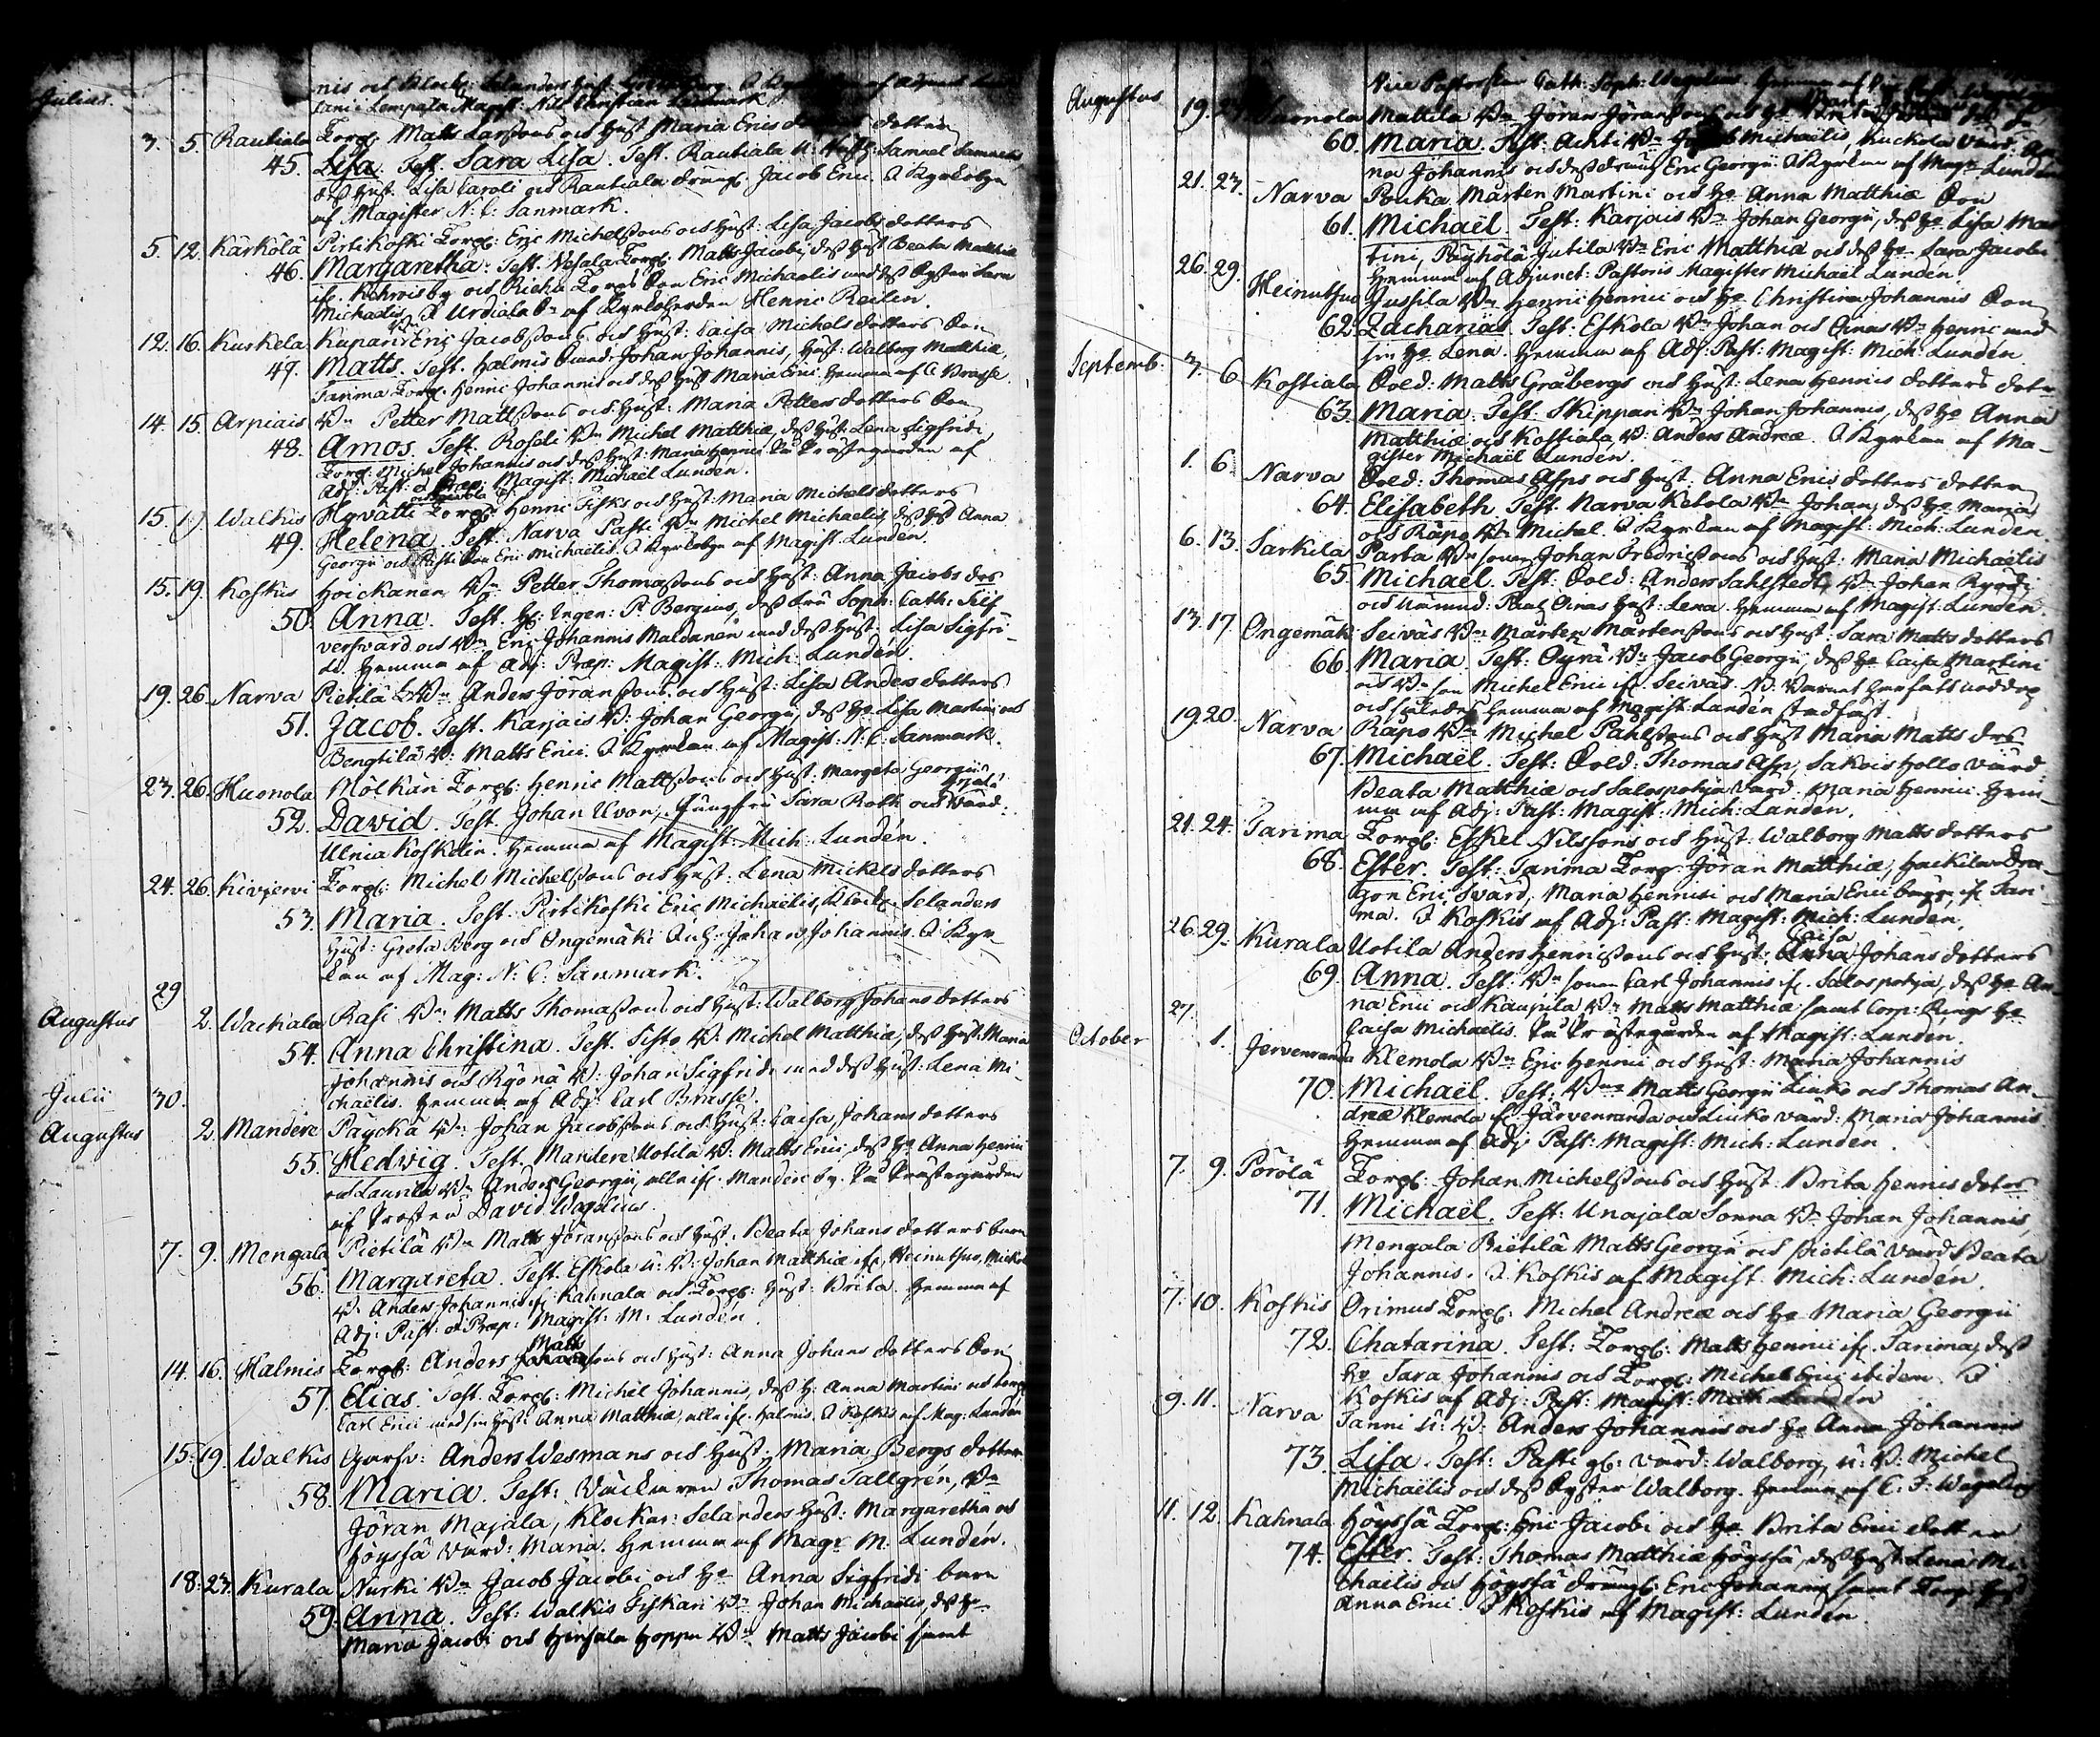 Julius.
nis och Klock: Selanders Hust
Lempala Magist: Nils Christian Sanmark
3. 5. Rautiala Torp: Matts Larssons och Hust Maria Erics dotter
45. Lisa. Test. Sara Lisa. Test. Rautiala Samuel
dess Hust Lisa Caroli och Rautiala dräng: Jacob Erici.
af Magister N: C: Sanmark.
5. 12. Kärkölä Pirtikoski Torp: Eric Michelssons och Hust: Lisa Jacobs dotters
46. Margaretha. Test. Vesala Torp: Matts Jacobi, dess Hust Beata Matthiæ
Torp Eric Michaelis med dess Syster Sara
Michaelis, Urdiala af Henric Reilin.
12. 16. Kuskela Kupari Wn Eric Jacobssons och Hust: Caisa Michels dotters Son
47. Matts. Test. Halmis Johan Johannis, Hust: Walborg Matthiæ,
Tarima Torp: Henric Johannis och dess Hust Maria Erici. Hemma af C. Brasse.
14. 15. Arpiais Wn Petter Mattssons och Hust: Maria Petters dotters Son
48. Amos. Test. Rosedi Wn Michel Matthiæ, dess Hust Lena Sigfridi
Torp: Michel Johannis och dess Hust: Maria Henrici På Prästegården af
Adj: Past: o Præp: Magist: Michael Lundén.
15. 17. Walkis Torp: Henric Fisks och Hust: Maria Michelsdotters
49. Helena. Test. Narva Pasti Wn Michel Michaelis, dess Hust Anna
Georgii och Pasti Son Eric Michaelis. af Magist Lundén.
15. 19. Koskis Hoickanen Wn Petter Thomassons och Hust: Anna Jacobs drs
50. Anna. Test. P: Bergius, dess Fru Soph: Cath: Silf-
versvärd och Wn Eric Johannis Maldanen med dess Hust: Lisa Sigfri-
di. Hemma af Adj: Præp: Magist: Mich: Lundén.
19. 26. Narva Pietilä Wn Anders Jöranssons och Hust: Lisa Anders dotters
51. Jacob. Test. Karjais W: Johan Georgii, dess Ho Lisa Martini och
Bengtilä W: Matts Erici. I Kyrkan af Magist: N: C: Sanmark.
23. 26. Huonola Mölkän Torp: Henric Mattssons och Hust: Margeta Georgii
52. David. Test. Johan Uvon, Jungfru Sara Roth och
Ulnia Koskelin. Hemma af Magist: Mich: Lundén.
24. 26. Kivijervi Torp: Michel Michelssons och Hust: Lena Mickels dotters
53. Maria. Test. Pirtikoski Eric Michaelis, Klock: Selanders
Hust: Greta Berg och Ongemäki Johan Johannis. I Kyr-
kan af Mag: N: C: Sanmark.
29
Augustus 2. Wackala Rasi Wn Matts Thomassons och Hust: Walborg Johans dotters
54. Anna Christina. Test. Sisto W: Michel Matthiæ, dess Hust Maria
Johannis och Ryönä W: Johan Sigfridi med dess Hust: Lena Mi-
chaelis. Hemma af Adj: Carl Brasse.
Julii 30.
Augustus 2. Mandere Päyckä Wn Johan Jacobssons och Hust: Caisa Johans dotters
55. Hedwig. Test. Mandere Uotila W: Matts Erici, dess Ho Anna Henrici
och Laurila Wn Anders Georgii, alle ifr. Mandere by. På Prästegården
af Prosten David Wegelius.
7. 9. Mengala Pietilä Wn Matts Jöranssons och Hust: Beata Johans dotters barn
56. Margareta. Test. Eskola W: Johan Matthiæ ifr Heinuhuo, Michel
W: Anders Johannis ifr Kahnala och Torp: Hust: Brita. Hemma af
Adj: Past: o Præp: Magist: M: Lundén.
14. 16. Halmis Torp: Anders Mattssons och Hust: Anna Johans dotters Son
57. Elias. Test. Torp: Michel Johannis, dess H: Anna Martini
Carl Erici med sin Hust: Anna Matthiæ, alle ifr. Halmis, I Koskis af Mag: Lundén
15. 19. Walkis Anders Wesmans och Hust: Maria Bergs dotter
58. Maria. Test: Thomas Tallgrén, Wn
Jöran Majala, Klockar: Selanders Hust: Margaretha och
Höyssä Värd: Maria. Hemma af Magr M. Lundén.
18. 23. Kurala Nurki Wn Jacob Jacobi och Ho Anna Sigfridi barn
59. Anna. Test: Walkis Fiskari Wn Johan Michaelis, dess Ho
Maria Jacobi och Hensala Hoppu Wn Matts Jacobi samt
Augustus Vice Pastorskan Cath: Soph: Wegelius. Hemma af
19. 21. Huonola Mattila Wn Jöran Jöranssons och Ho
60. Maria. Test: Achti Wn Jacob Michaelis, Kuckola Värd: An-
na Johannis och dess dräng Eric Georgii. I Kyrkan af Magr Lundén
21. 23. Narva Pouka Mårten Martini och Ho Anna Matthiæ Son
61. Michaël. Test: Karjais Wn Johan Georgii, dess Ho Lisa Mar-
tini, Päyhölä Jutila Wn Eric Matthiæ och dess Ho Sara Jacobi
Hemma af Adjunct: Pastoris Magister Michael Lundén
26. 29. Heinuhuo Jussila Wn Henric Henrici och Ho Christina Johannis Son
62. Zacharias. Test: Eskola Wn Johan och Oinas Wn Henric med
sin Ho Lena. Hemma af Adj: Past: Magist: Mich: Lundén
Septemb: 3. 6 Kostiala Sold: Matts Grabergs och Hust: Lena Henrics dotters dotr
63. Maria. Test: Skippari Wn Johan Johannis, dess Ho Anna
Matthiæ och Kostiala W: Anders Andreæ. I Kyrkan af Ma-
gister Michael Lundén.
1. 6 Narva Sold: Thomas Asps och Hust: Anna Erics dotters dotter
64. Elisabeth. Test. Narva Ketola Wn Johan, dess Ho Maria
och Räpo Wn Michel. I Kyrkan af Magist: Mich: Lundén.
6. 13. Sarkila Parta Wn sonen Johan Fredricssons och Hust: Maria Michaelis
65. Michael. Test: Sold: Anders Sahlstedt, Wn Johan
och Nämnd: Oinas Hust: Lena. Hemma af Magist: Lundén.
13. 17. Ongemäki Seiväs Wn Mårten Mårtenssons och Hust: Sara Matts dotters
66. Maria. Test: Öyrä Wn Jacob Georgii, dess Ho Caisa Martini
och Wn son Michel Erici ifr. Seiväs. N: Barnet har fått nöddop
och sedan hemma af Magist: Lundén stadfäst.
19. 20. Narva Räpo Wn Michel Pahlssons och Hust Maria Matts drs
67. Michaël. Test: Sold: Thomas Asp, Sakois Hollo Värd:
Beata Matthiæ och Salospohja Värd: Maria Henrici. Hem-
ma af Adj: Past: Magist: Mich: Lundén.
21. 24. Tarima Torp: Eskel Nilssons och Hust: Walborg Matts dotters
68. Ester. Test: Tarima Torp: Jöran Matthiæ, Hackila Dra-
gon Eric Svärd, Maria Henrici och Maria Erici begge ifr Tari-
ma. I Koskis af Adj: Past: Magist: Mich: Lundén.
26. 29. Kurala Uotila Anders Henrissons och Hust: Caisa Johans dotters
69. Anna. Test: Wn sonen Carl Johannis ifr. Salospohja, dess Ho An-
na Erici och Kaupila Wn Matts Matthiæ samt Corp: Rings Ho
Caisa Michaelis. På Prästegården af Magist: Lundén.
27.
October 1. Jervenranda Klemola Wn Eric Henrici och Hust: Maria Johannis
70. Michaël. Test: Matts Georgii Linko och Thomas An-
dreæ Klemola ifr. Järvenranda och Linko värd: Maria Johannis
Hemma af Adj: Past: Magist: Mich: Lundén
7. 9. Pörölä Torp: Johan Michelssons och Hust: Brita Henrics dotrs
71. Michael. Test: Unajala Sonna Wn Johan Johannis,
Mengala Pietilä Matts Georgii och Pietilä Värd Beata
Johannis. I Koskis af Magist. Mich: Lundén.
7. 10. Koskis Orimus Torp: Michel Andreæ och Ho Maria Georgii
72. Chatarina. Test: Torp: Matts Henrici ifr. Tarima, dess
Ho Sara Johannis och Torp: Michel Erici ibidem. I
Koskis af Adj: Past: Magist: Mich: Lundén
9. 11. Narva Tanni W: Anders Johannis och Ho Anna Johannis
73. Lisa. Test: Pasti Värd: Walborg, W: Michel
Michaelis och dess Syster Walborg. Hemma af C. F: Wegelius
11. 12. Kahnala Höyssä Torp: Eric Jacobi och Ho Brita Erici dotter
74. Ester. Test: Thomas Matthiæ Höyssä, dess Hust: Lena Mi-
chaelis och Höyssä dräng: Eric Johannis samt Torp: Hust
Anna Erici. I Koskis af Magist: Lundén.